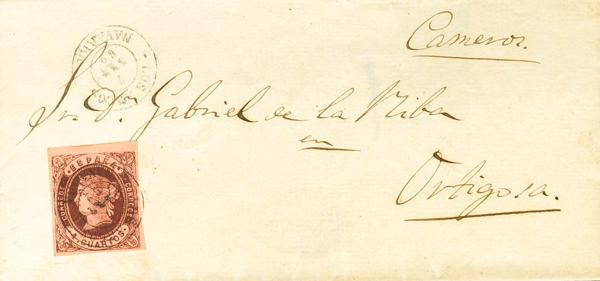 Cameros.
Sr. Dn. Gabriel de la Riba
en
Ortigosa.
ESPAÑA
CORREOS CORREOS
4 CUARTOS.